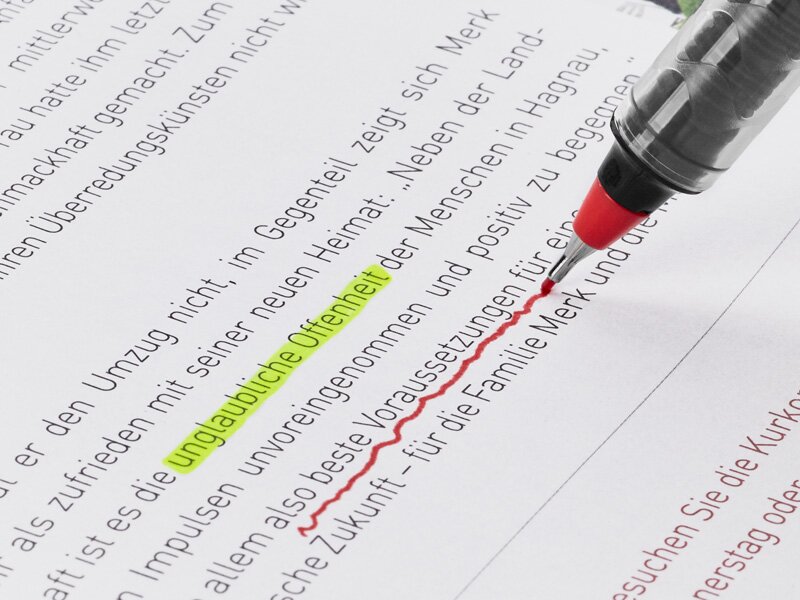 mittlerwe
rau hatte ihm letzt
chmackhaft gemacht. Zum
ihren Überredungskünsten nicht wi
er den Umzug nicht, im Gegenteil zeigt sich Merk
als zufrieden mit seiner neuen Heimat: „Neben der Land-
aft ist es die unglaubliche Offenheit der Menschen in Hagnau,
Impulsen unvoreingenommen und positiv zu begegnen"
allem also beste Voraussetzungen für eine
sche Zukunft – für die Familie Merk und die
esuchen Sie die Kurkon
nerstag oder